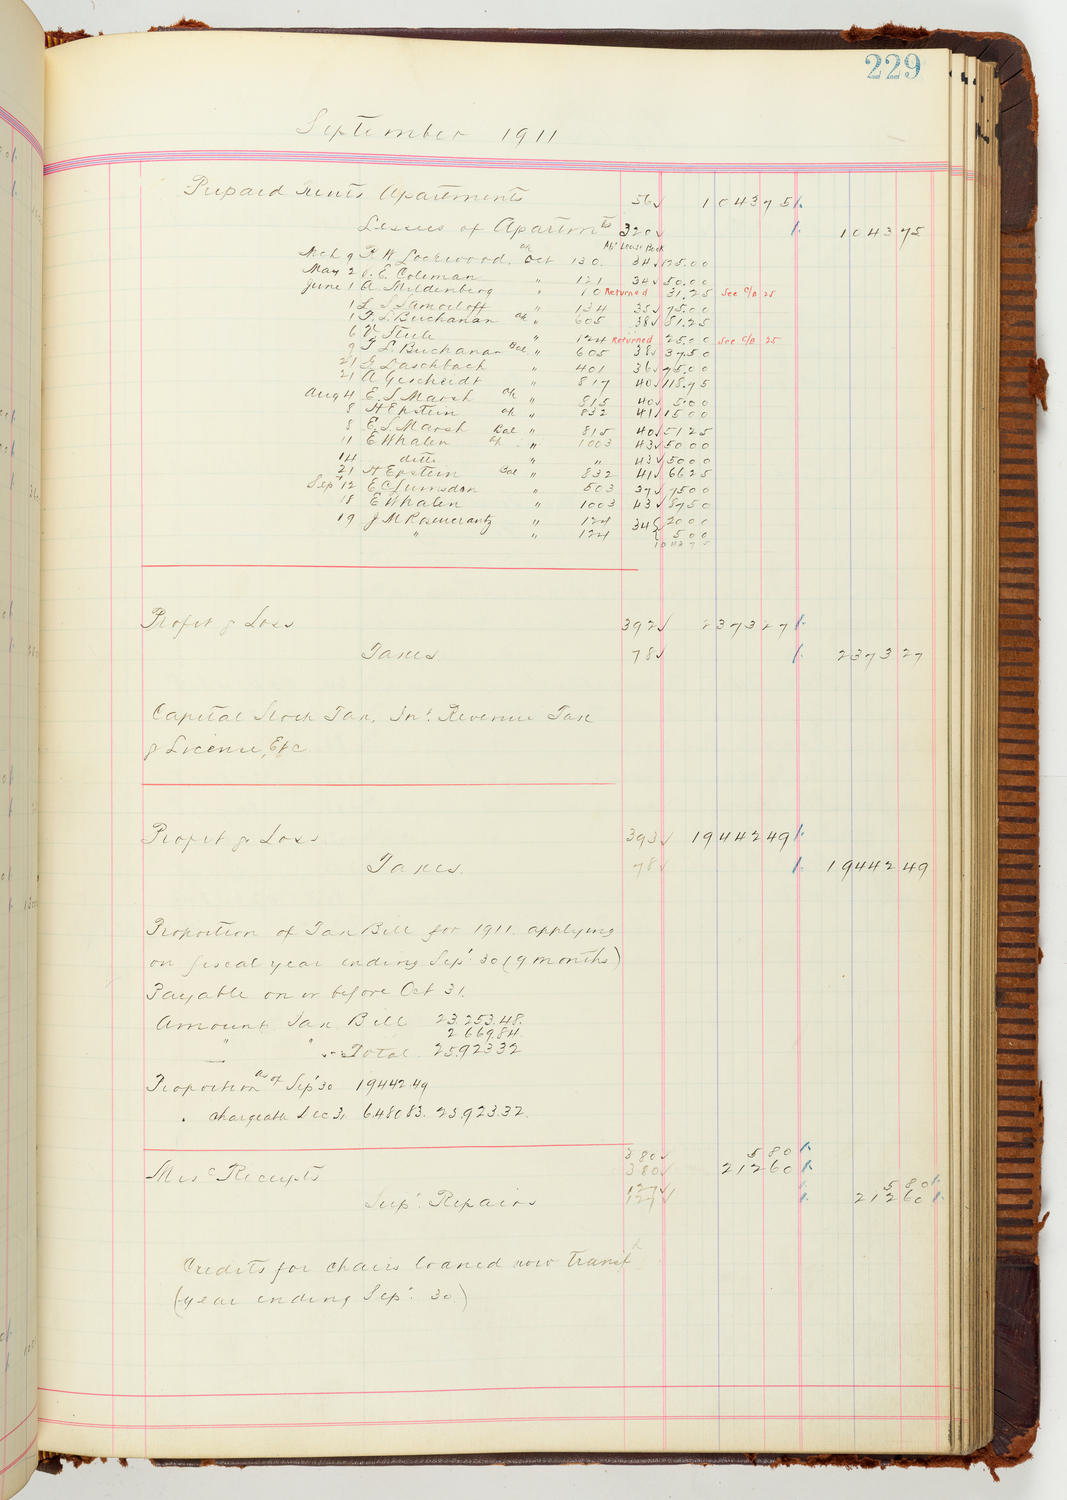 229
September 1911
Prepaid rents Apartments 56 ✓ 1043 75
Lessees of Apartmts 320 ✓ 1043 75
Apt Lease Book
Mch 9 R W Lockwood. Oct 130. 34 ✓ 125.00
May 2 J. E. Coleman " 121 34 ✓ 50.00
June 1 A Mildenberg " 10 Returned 31.25 See C/B 25
1 L S Samoiloff " 134 35 ✓ 75.00
1 T. L. Buchanan " 605 38 ✓ 51.25
6 V. Stull " 124 Returned 25.00 See C/B 25
9 T L Buchanan Bal " 605 38 ✓ 37.50
21 G Laschbach " 401 36 ✓ 75.00
21 A Gescheidt " 817 40 ✓ 118.75
Aug 4 E. S. Marsh " 815 40 ✓ 5.00
8 H Epstein " 832 41 ✓ 15 00
8 E S Marsh Bal " 815 40 ✓ 51 25
11 E Whalen " 1003 43 ✓ 50 00
14 ditto " " 43 ✓ 50 00
21 H Epstein Bal " 832 41 ✓ 66 25
Sept 12 E C Lumsdon " 503 37 ✓ 75 00
18 E Whalen " 1003 43 ✓ 87 50
19 J M Rosencrantz " 124 34 20 00
" " 124 5 00
1043 75
Profit & Loss 392 ✓ 2373 27
Taxes 78 ✓ 2373 27
Capital Stock Tax, Int. Revenue Tax
& License, Etc
Profit & Loss 393 ✓ 19442 49
Taxes. 78 ✓ 19442 49
Proportion of Tax Bill for 1911 applying
on fiscal year ending Sept 30 (9 months)
Payable on or before Oct 31.
Amount Tax Bill 23.253.48.
" " 2 669.84.
Total 25.923 32
Proportion as of Sept 30 19442.49
" chargeable Dec 31 6480 83. 25.923.32.
380 ✓ 5 80
Misc Receipts 380 ✓ 212 60
127 ✓ 5 80
Supt. Repairs 127 ✓ 212 60
Credits for chairs loaned now transf
(year ending Sept. 30)